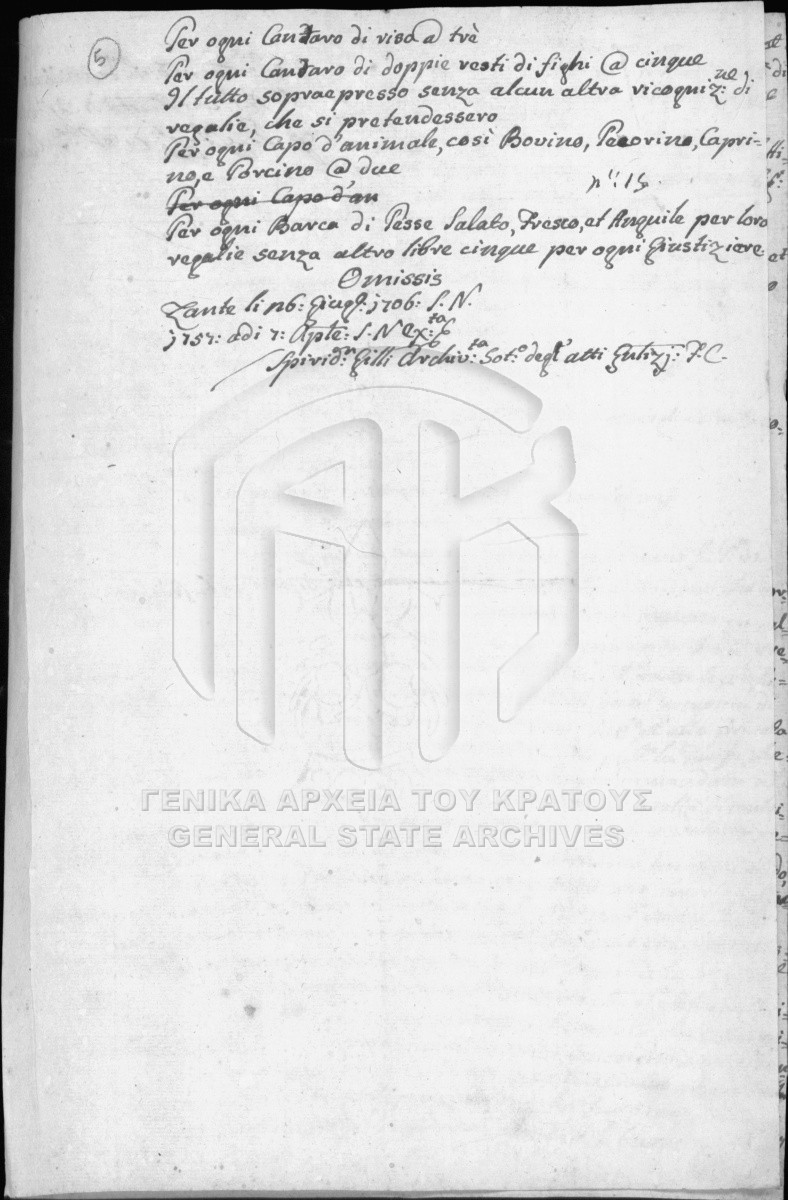 5
Per ogni Cantaro di riso @ trè
Per ogni Cantaro di doppie resti di fighi @ cinque
Il tutto sopraepresso senza alcun altra ricogniz:ne di
regalie, che si pretendessero
Per ogni Capo d'animale, così Bovino, Pecorino, Capri=
no, e Porcino @ due
n°: 15.
Per ogni Capo d'an
Per ogni Barca di Pesse Salato, Fresco, et Anguile per loro
regalie senza altro libre cinque per ogni Giustiziere
Omissis
Zante li 26: Giug: 1706: S. N.
1757: adi 7: Aple: S. N Ex:ta
Spirid:n Gilli Archiv:ta Sot:o degl' atti F. C.
ΓΕΝΙΚΑ ΑΡΧΕΙΑ ΤΟΥ ΚΡΑΤΟΥΣ
GENERAL STATE ARCHIVES